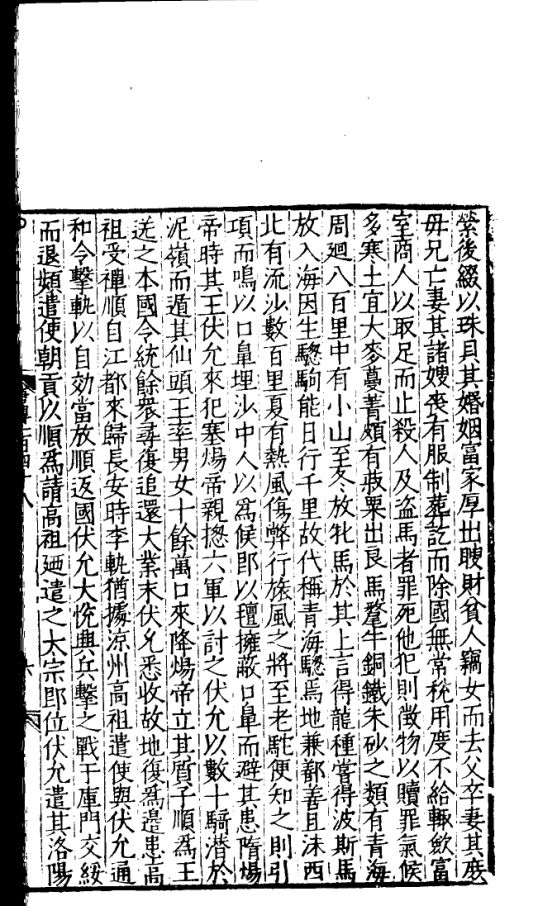 縈後綴以珠貝其婚姻富家厚出聘財貧人竊女而去父卒妻其庶
母兄亡妻其諸嫂喪有服制葬訖而除國無常稅用度不給輙斂富
室商人以取足而止殺人及盗馬者罪死他犯則徵物以贖罪氣候
多寒土宜大麥蔓菁頗有菽粟出良馬氂牛銅鐵朱砂之類有青海
周廻八百里中有小山至冬放牝馬於其上言得龍種嘗得波斯馬
放入海因生驄駒能日行千里故代稱青海驄焉地兼鄯善且沬西
北有流沙數百里夏有熱風傷弊行旅風之將至老駝便知之則引
項而鳴以口鼻埋沙中人以為候即以氊擁蔽口鼻而避其患隋煬
帝時其王伏允來犯塞煬帝親摠六軍以討之伏允以數十騎潜於
泥嶺而遁其仙頭王率男女十餘萬口來降煬帝立其質子順為王
送之本國令統餘衆尋復追還大業末伏允悉收故地復為邊患高
祖受禪順自江都來歸長安時李軌猶據凉州高祖遣使與伏允通
和令擊軌以自効當放順返國伏允大悅興兵擊之戰于庫門交綏
而退頻遣使朝貢以順為請高祖廼遣之太宗即位伏允遣其洛陽